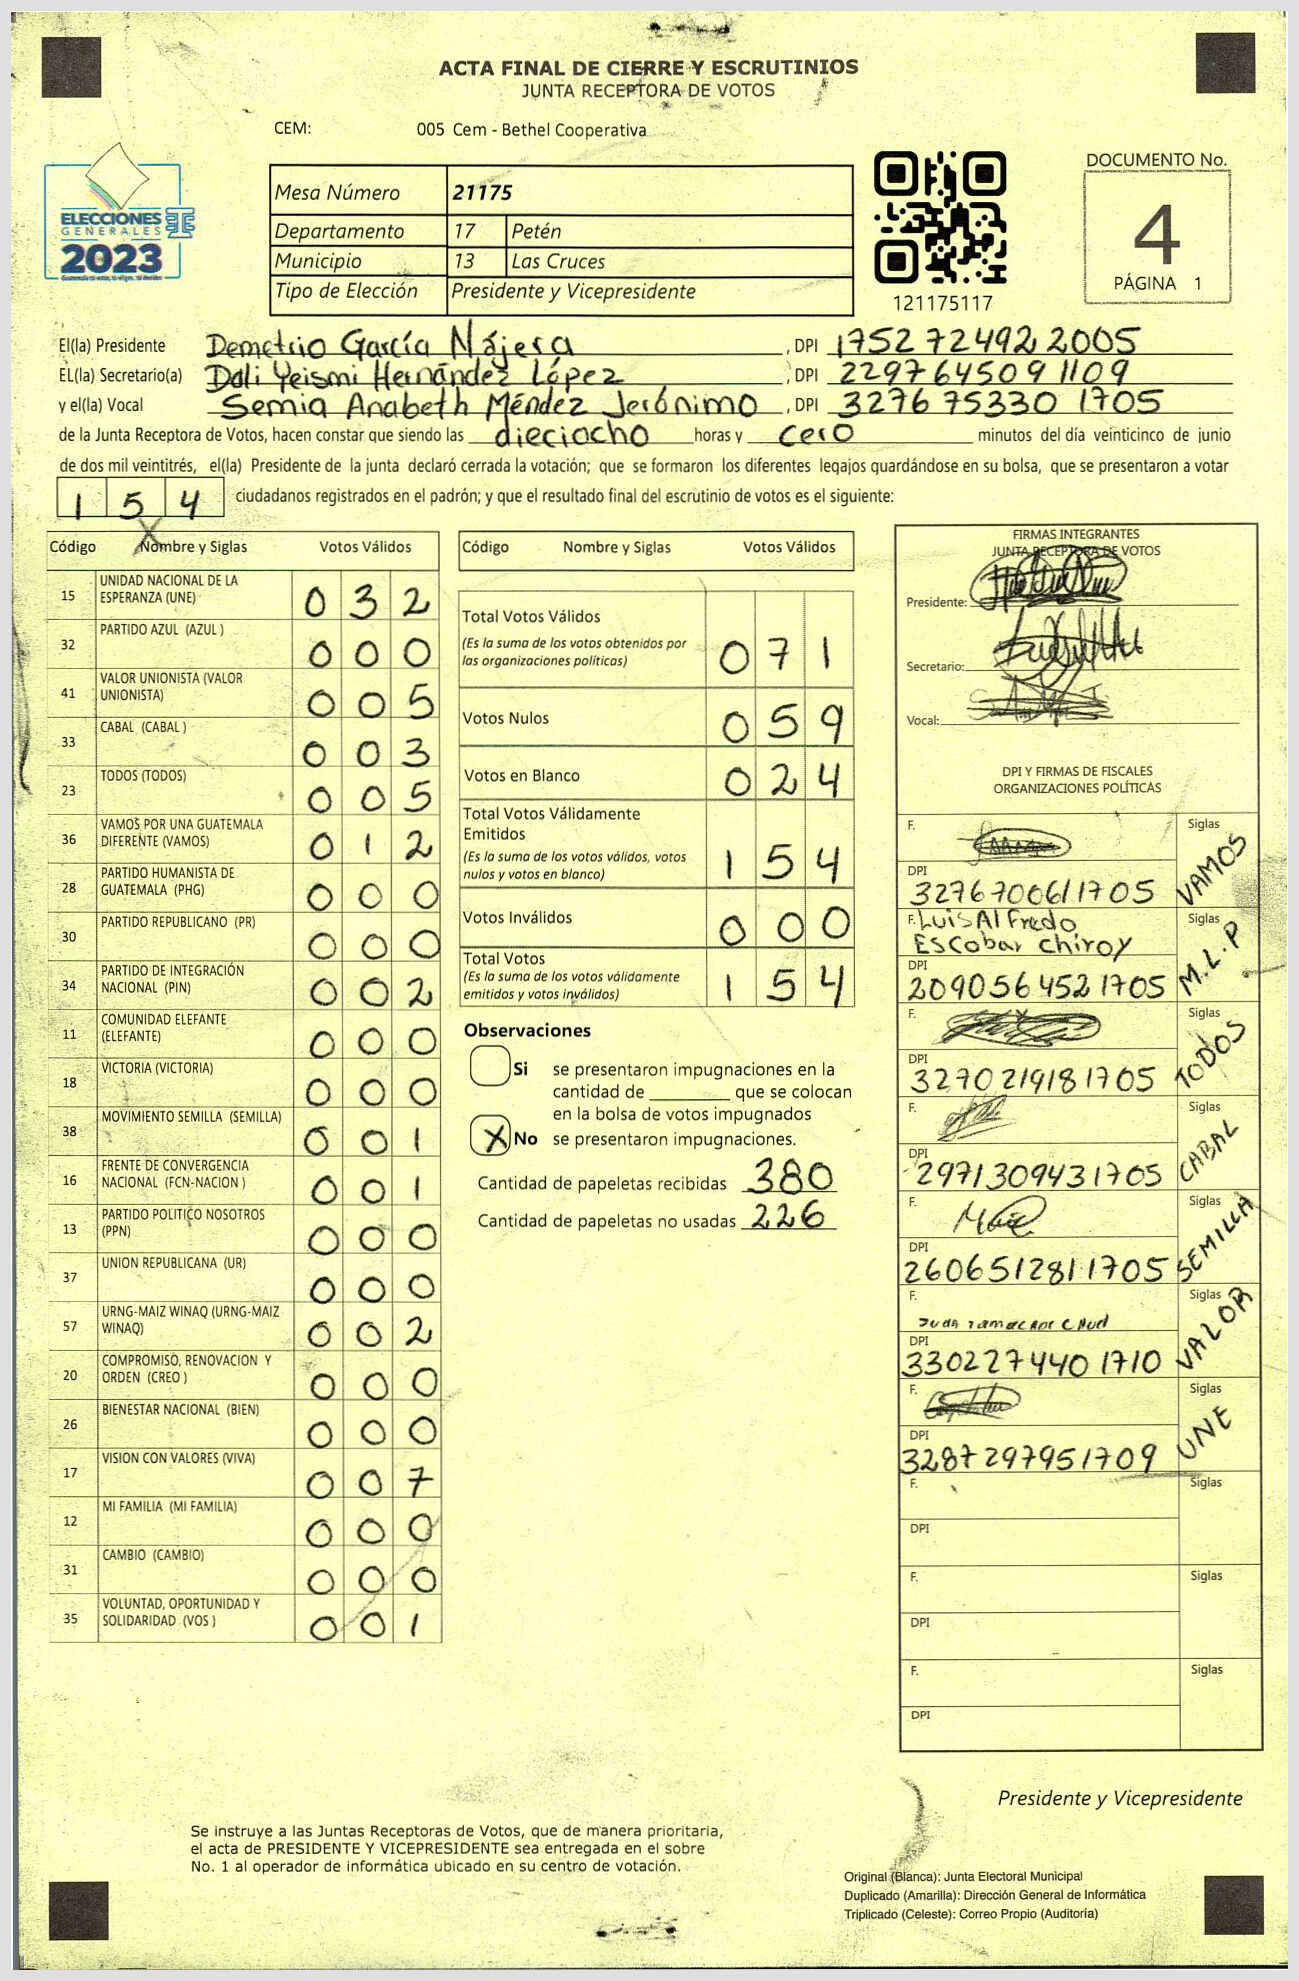 ACTA FINAL DE CIERRE Y ESCRUTINIOS
JUNTA RECEPTORA DE VOTOS
CEM: 005 Cem - Bethel Cooperativa
ELECCIONES
GENERALES
2023
Mesa Número 21175
Departamento 17 Petén
Municipio 13 Las Cruces
Tipo de Elección Presidente y Vicepresidente
121175117
DOCUMENTO No.
4
PÁGINA 1
El(la) Presidente Demetrio García Nájera , DPI 1752 72492 2005
EL(la) Secretario(a) Dali Yeismi Hernández López , DPI 2297645091109
y el(la) Vocal Semia Anabeth Méndez Jerónimo , DPI 3276 75330 1705
de la Junta Receptora de Votos, hacen constar que siendo las dieciocho horas y cero minutos del día veinticinco de junio
de dos mil veintitrés, el(la) Presidente de la junta declaró cerrada la votación; que se formaron los diferentes legajos quardándose en su bolsa, que se presentaron a votar
1 5 4 ciudadanos registrados en el padrón; y que el resultado final del escrutinio de votos es el siguiente:
Código Nombre y Siglas Votos Válidos
15 UNIDAD NACIONAL DE LA ESPERANZA (UNE) 0 3 2
32 PARTIDO AZUL (AZUL ) 0 0 0
41 VALOR UNIONISTA (VALOR UNIONISTA) 0 0 5
33 CABAL (CABAL ) 0 0 3
23 TODOS (TODOS) 0 0 5
36 VAMOS POR UNA GUATEMALA DIFERENTE (VAMOS) 0 1 2
28 PARTIDO HUMANISTA DE GUATEMALA (PHG) 0 0 0
30 PARTIDO REPUBLICANO (PR) 0 0 0
34 PARTIDO DE INTEGRACIÓN NACIONAL (PIN) 0 0 2
11 COMUNIDAD ELEFANTE (ELEFANTE) 0 0 0
18 VICTORIA (VICTORIA) 0 0 0
38 MOVIMIENTO SEMILLA (SEMILLA) 0 0 1
16 FRENTE DE CONVERGENCIA NACIONAL (FCN-NACION ) 0 0 1
13 PARTIDO POLITICO NOSOTROS (PPN) 0 0 0
37 UNION REPUBLICANA (UR) 0 0 0
57 URNG-MAIZ WINAQ (URNG-MAIZ WINAQ) 0 0 2
20 COMPROMISO, RENOVACION Y ORDEN (CREO ) 0 0 0
26 BIENESTAR NACIONAL (BIEN) 0 0 0
17 VISION CON VALORES (VIVA) 0 0 7
12 MI FAMILIA (MI FAMILIA) 0 0 0
31 CAMBIO (CAMBIO) 0 0 0
35 VOLUNTAD, OPORTUNIDAD Y SOLIDARIDAD (VOS ) 0 0 1
Código Nombre y Siglas Votos Válidos
Total Votos Válidos 0 7 1
(Es la suma de los votos obtenidos por
las organizaciones políticas)
Votos Nulos 0 5 9
Votos en Blanco 0 2 4
Total Votos Válidamente
Emitidos 1 5 4
(Es la suma de los votos válidos, votos
nulos y votos en blanco)
Votos Inválidos 0 0 0
Total Votos 1 5 4
(Es la suma de los votos válidamente
emitidos y votos inválidos)
Observaciones
Si se presentaron impugnaciones en la
cantidad de ________ que se colocan
en la bolsa de votos impugnados
X No se presentaron impugnaciones.
Cantidad de papeletas recibidas 380
Cantidad de papeletas no usadas 226
FIRMAS INTEGRANTES
JUNTA RECEPTORA DE VOTOS
Presidente:
Secretario:
Vocal:
DPI Y FIRMAS DE FISCALES
ORGANIZACIONES POLÍTICAS
F. Siglas VAMOS
DPI
3276700611705
F. Luis Alfredo Siglas M.L.P
Escobar Chiroy
DPI
2090564521705
F. Siglas TODOS
DPI
3270219181705
F. Siglas CABAL
DPI
2971309431705
F. Siglas SEMILLA
DPI
2606512811705
F. Siglas VALOR
DPI
330227440 1710
F. Siglas UNE
DPI
3287297951709
F. Siglas
DPI
F. Siglas
DPI
F. Siglas
DPI
Presidente y Vicepresidente
Se instruye a las Juntas Receptoras de Votos, que de manera prioritaria,
el acta de PRESIDENTE Y VICEPRESIDENTE sea entregada en el sobre
No. 1 al operador de informática ubicado en su centro de votación.
Original (Blanca): Junta Electoral Municipal
Duplicado (Amarilla): Dirección General de Informática
Triplicado (Celeste): Correo Propio (Auditoría)